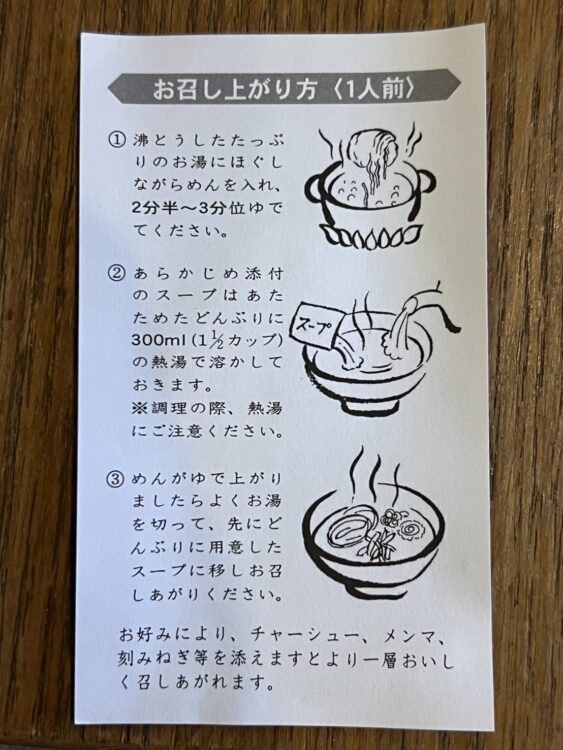 お召し上がり方〈1人前〉
①沸とうしたたっぷ
りのお湯にほぐし
ながらめんを入れ、
2分半〜3分位ゆで
てください。
②あらかじめ添付
のスープはあた
ためたどんぶりに
300ml(1½カップ)
の熱湯で溶かして
おきます。
※調理の際、熱湯
にご注意ください。
スープ
③めんがゆで上がり
ましたらよくお湯
を切って、先にど
んぶりに用意した
スープに移しお召
しあがりください。
お好みにより、チャーシュー、メンマ、
刻みねぎ等を添えますとより一層おいし
く召しあがれます。